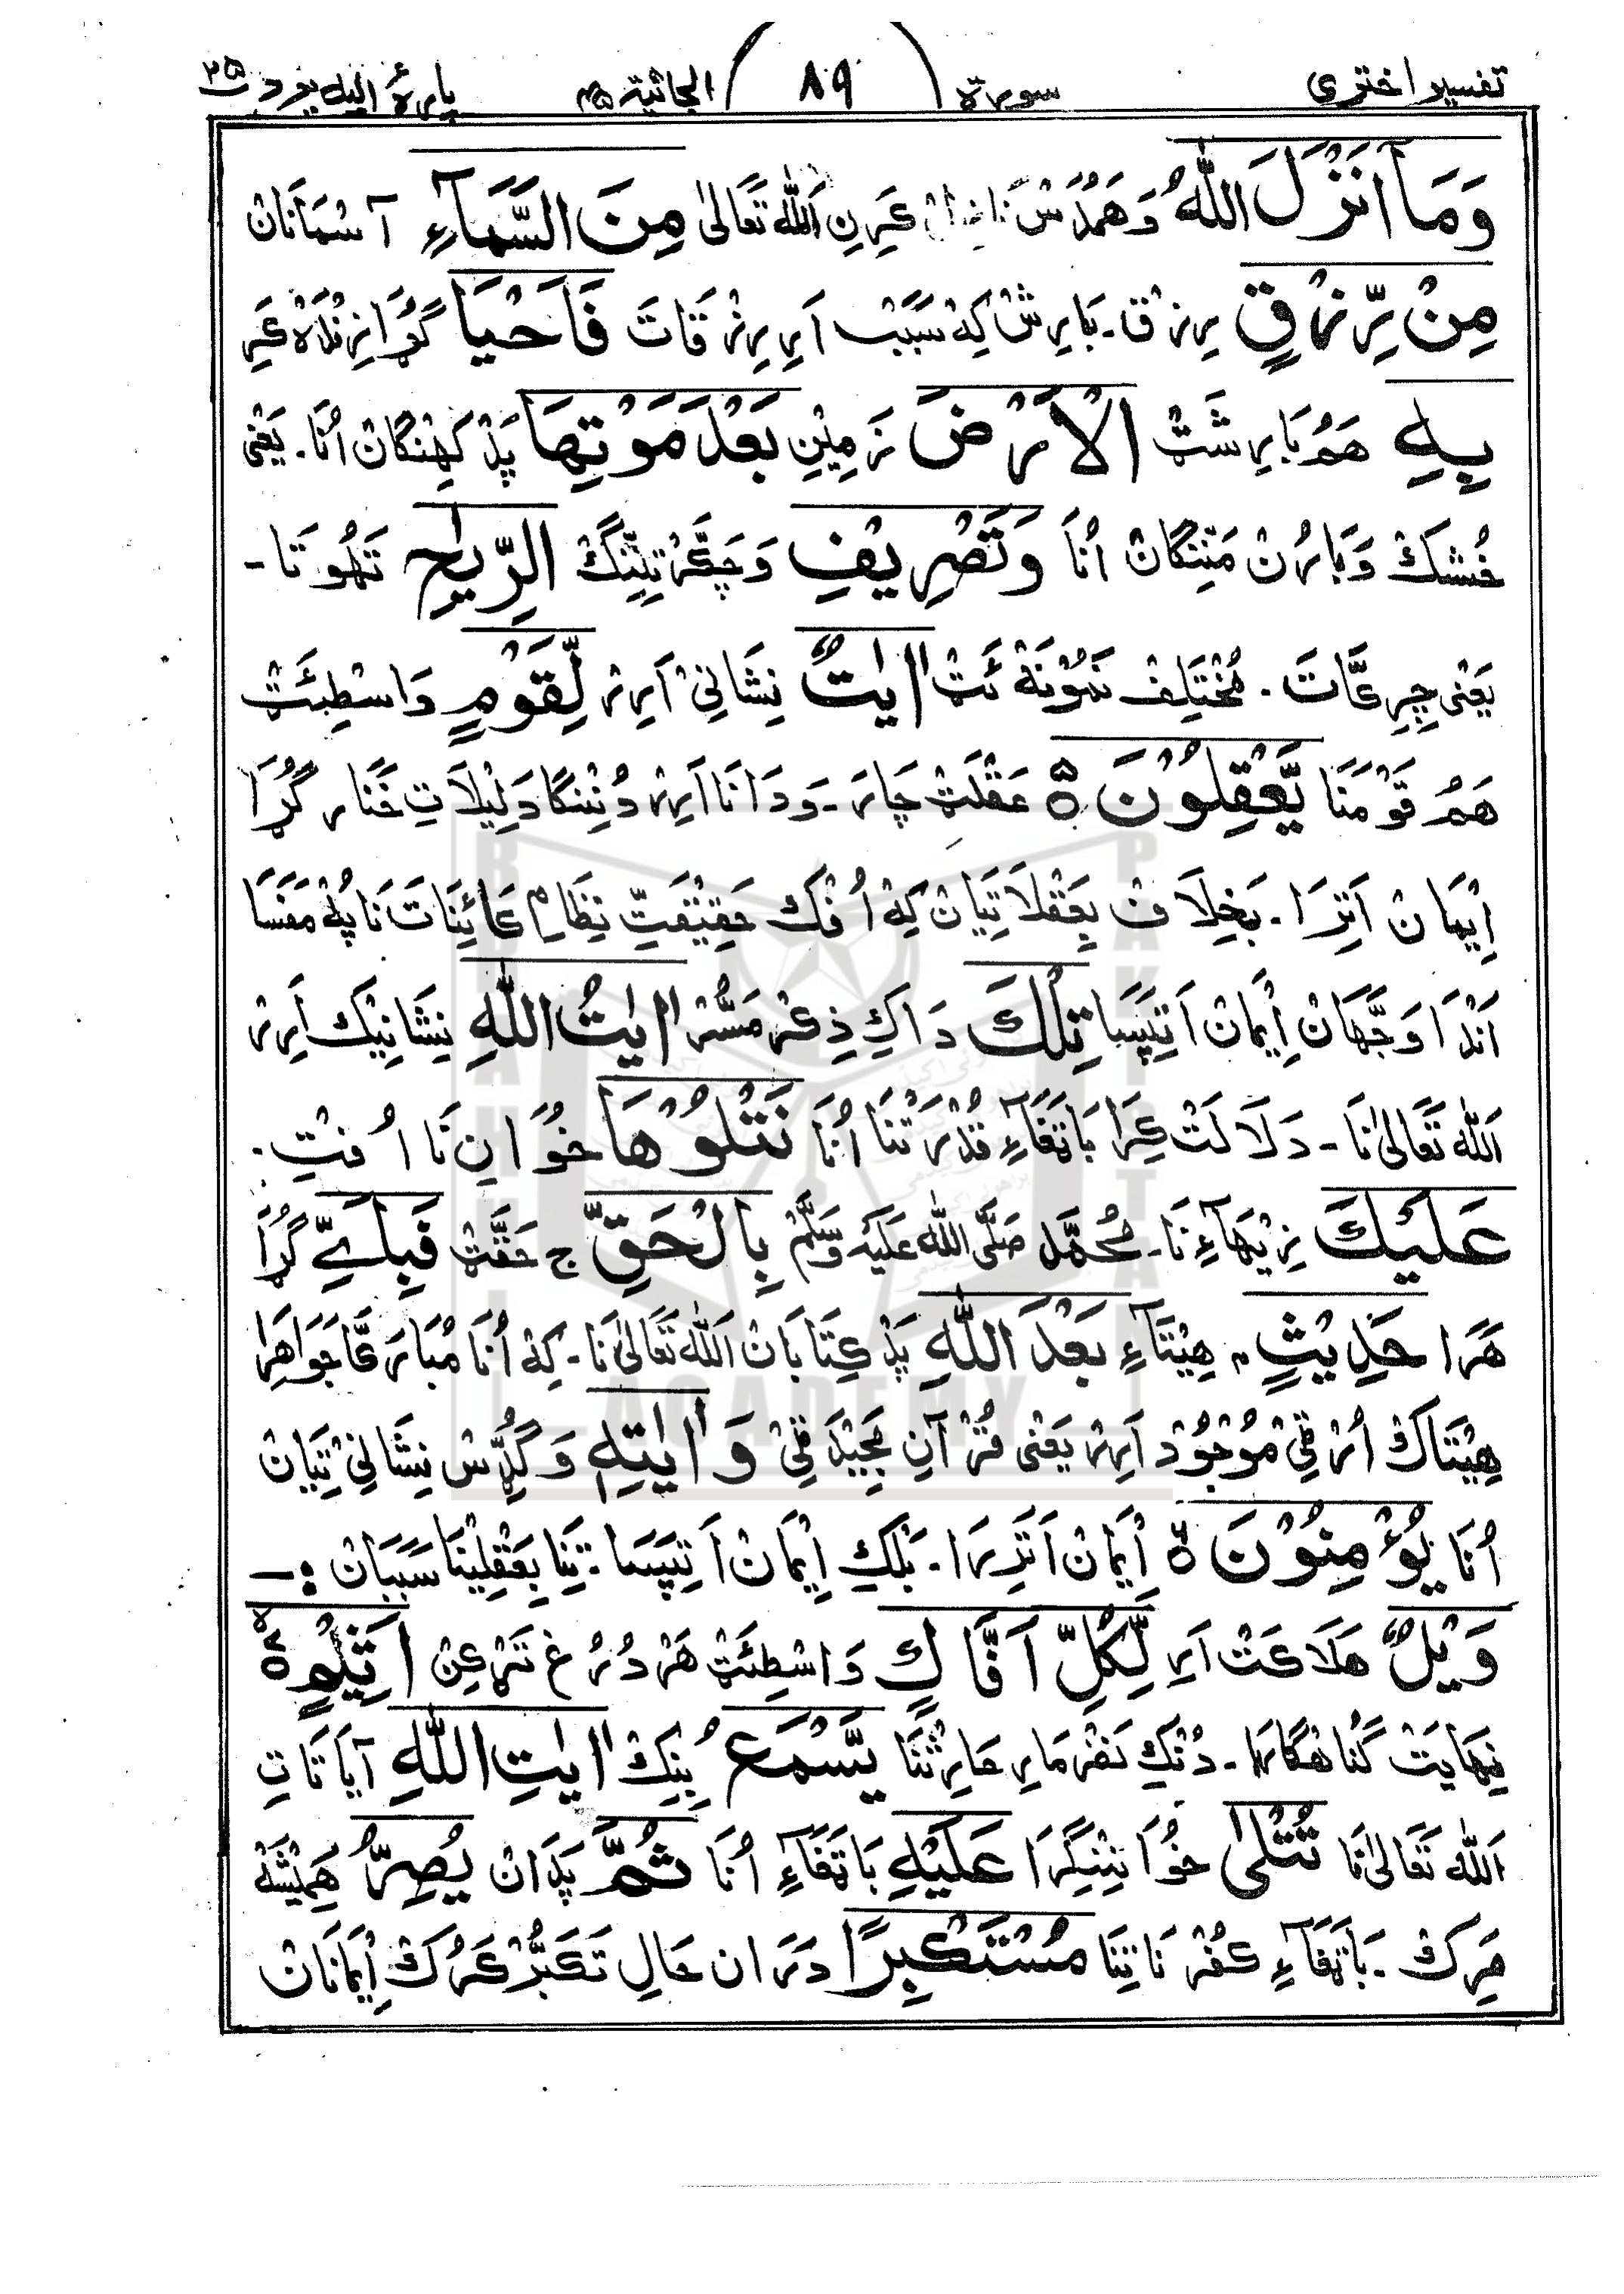 تفسیر اختری سورة (۸۹) الجاثیة ۴۵ پارۀ الیه یرد ۲۵
وَمَآ اَنْزَلَ اللّٰهُ وَهَمُدُس عَرِنِ اَللّٰه تَعَالىٰ مِنَ السَّمَآءِ آسْمَانَانْ
مِنْ رِّزْقٍ رِزْق۔ بَارِشْ کِهْ سَبَبْ اَرِ رِزْقَاتَ فَاَحْیَا گُڑَا زِنْدَهْ عَرِ
بِهِ هَمُ بَارِشَتْ الْاَرْضَ زَمِیْنِ بَعْدَ مَوْتِهَا پَدْ کَهِنْگَانْ اُنَا۔ یَعْنِی
خُشک وَبَارُنْ مَنِنْگَانْ اُنَا وَتَصْرِیْفِ وَچَکَّرْ تِنِنْگ الرِّیٰحِ تَهُوتَا۔
یَعْنِی چِرِعَّاتَ۔ مُخْتَلِفْ نَمُوْنَهْ ئَتْ اٰیٰتٌ نِشَانِیْ اَرِرْ لِّقَوْمٍ وَاسْطِئَتْ
هَمُ قَوْمَنَا یَّعْقِلُوْنَ ۵ عَقْلَتْ چَارَ۔ وَدَانَا اَرِرْ دُنِنْگَا دَلِیْلَاتِ خَنَار گُڑَا
اِیْمَانْ اَتِرَا۔ بَخِلَافْ بِعَقْلَاتِیَانْ کِهْ اُفْک حَقِیْقَتِ نِظَامِ عَائِنَاتَ نَا پُهْ مَفَسَا
اَنْدَا وَجَّهَانْ اِیْمَانْ اَتِپَسَا تِلْكَ دَاکِ ذِعْرْ مَسُّرْ اٰیٰتُ اللّٰهِ نِشَانِیْک اَرِرْ
اَللّٰه تَعَالىٰ نَا۔ دَلَالَتْ کِرَا بَاتِغَآءِ قُدْرَتْنَا اُنَا نَتْلُوْهَا خُوَانِ نَا اُفْتِ۔
عَلَیْكَ نِیْهَآءِ نَا۔ مُحَمَّد صَلَّی اللّٰه عَلَیْهِ وَسَلَّمْ بِالْحَقِّ ج حَقَّتْ فَبِاَیِّ گُڑَا
هَرَا حَدِیْثٍ هِیْتَآءِ بَعْدَ اللّٰهِ پَدْ کِتَابَانْ اَللّٰه تَعَالىٰ نَا۔ کِهْ اُنَا مُبَارَعَّا جَوَاهِرَا
هِیْتَاکْ اُرْفِیْ مَوْجُوْد اَرِرْ یَعْنِی قُرْآنِ مَجِیْد فِیْ وَ اٰیٰتِهٖ وَگُڈِس نِشَانِیْ تِیَانْ
اُنَا یُؤْمِنُوْنَ ۵ اِیْمَانْ اَتِرَا۔ بَلْکِ اِیْمَانْ اَتِپَسَا۔ تِنَا بِعَقْلِیْنَا سَبَبَانْ ؞۔
وَیْلٌ هَلَاکَتْ اَرِ لِّکُلِّ اَفَّاكٍ وَاسْطِئَتْ هَرْ دُرُغ تَرْعِنْ اَثِیْمٍ ۵
نِهَایَتْ گُنَاهْگَارَا۔ دُنْکِ نَفَرْ مَارِ حَارِثْنَا یَسْمَعُ بِنِکْ اٰیٰتِ اللّٰهِ آیَاتَاتِ
اَللّٰه تَعَالىٰ نَا تُتْلٰی خُوَانِنِگَرَا عَلَیْهِ بَاتِغَآءِ اُنَا ثُمَّ پَدَانْ یُصِرُّ هَمِیْشَهْ
مَرِکْ۔ بَاتِغَآءِ کُفْرْ نَا تِنَا مُسْتَکْبِرًا دَرَانِ حَالِ تَکَبُّرْ کَرُکْ اِیْمَانَانْ